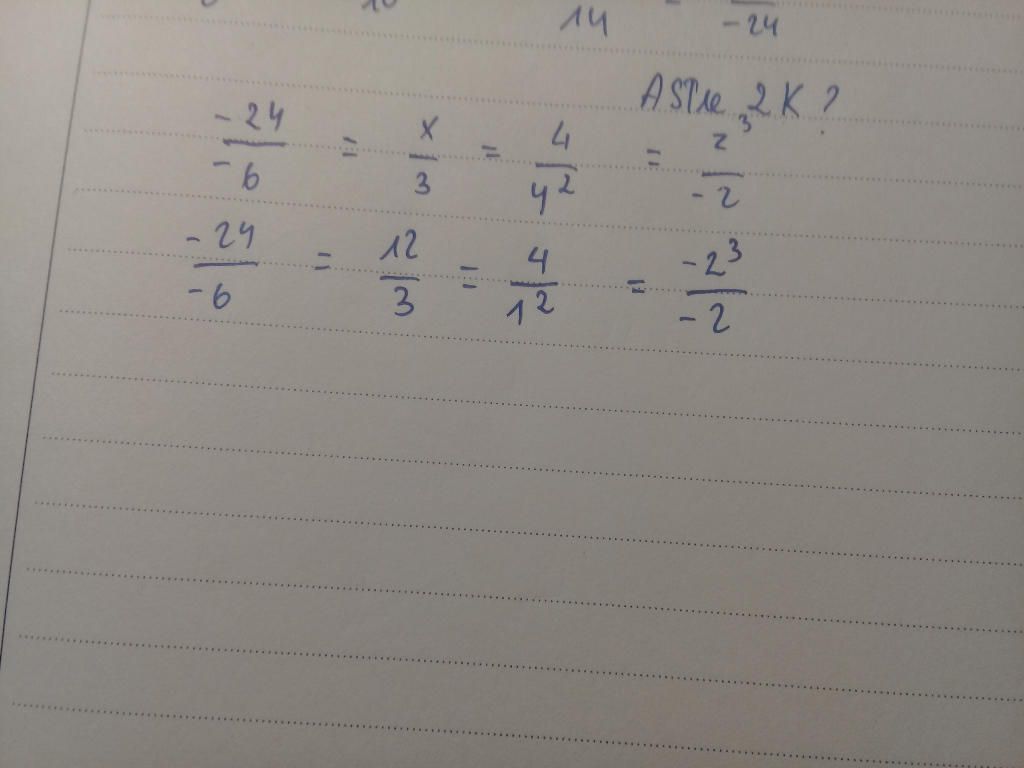 14 = -24
ASTRE 2K ?
-24/-6 = x/3 = 4/y² = z³/-2
-24/-6 = 12/3 = 4/1² = -2³/-2